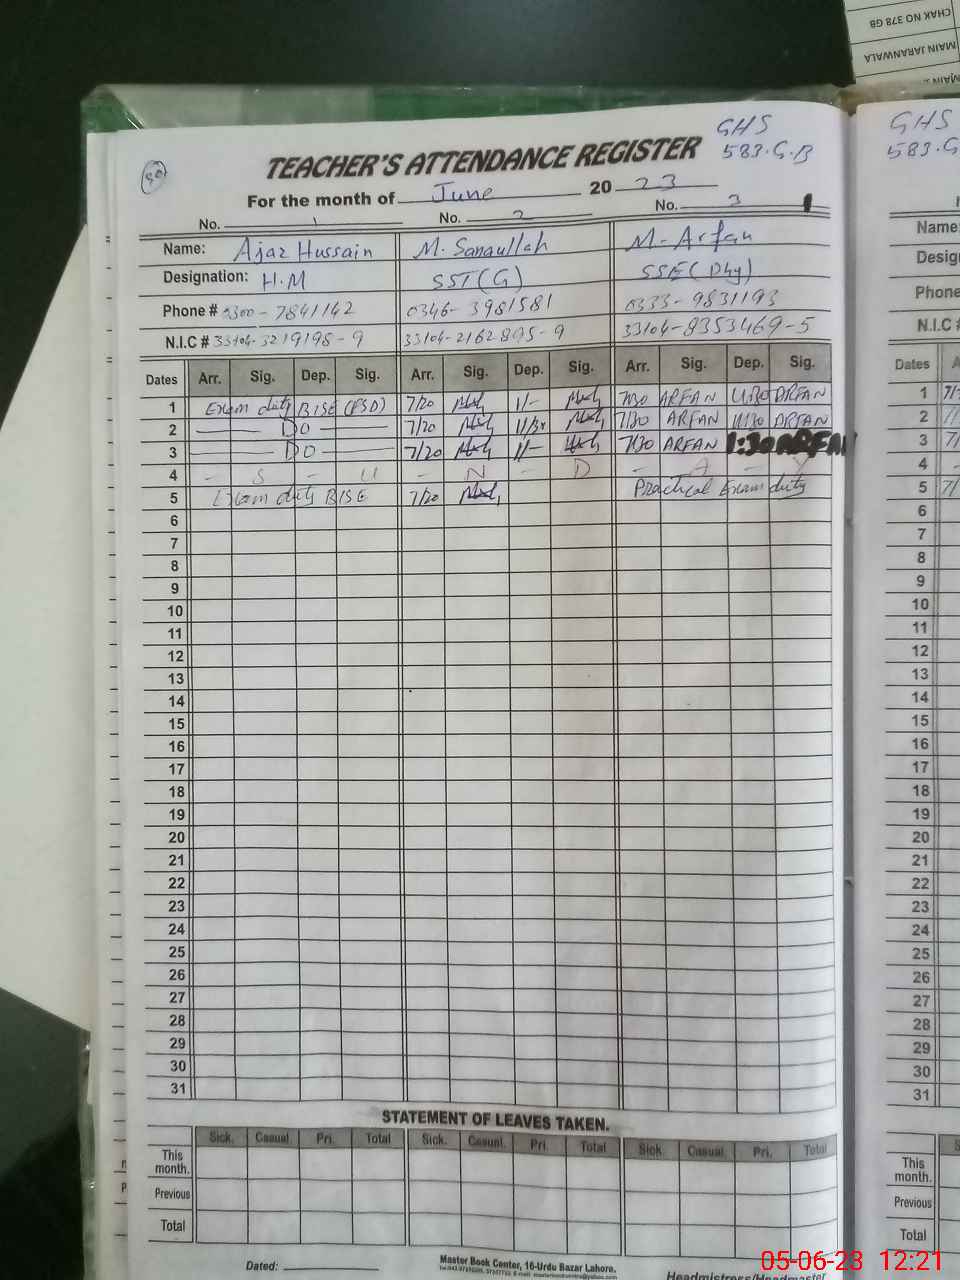 CHAK NO 378 GB
MAIN JARANWALA
GHS
583.G.B
TEACHER'S ATTENDANCE REGISTER
For the month of June 2023
No. 1 No. 2 No. 3
Name: Ajaz Hussain M. Sanaullah M-Arfan
Designation: H.M SST(G) SSE(Phy)
Phone # 0300-7841142 0346-3981581 0333-9831193
N.I.C # 33104-3219198-9 33104-2162895-9 33104-8353469-5
Dates Arr. Sig. Dep. Sig. Arr. Sig. Dep. Sig. Arr. Sig. Dep. Sig.
1 Exam duty BISE (FSD) 7/20 11/- 7/30 ARFAN 11:30 ARFAN
2 DO 7/20 11/30 7/30 ARFAN 11/30 ARFAN
3 DO 7/20 11/- 7/30 ARFAN 1:30 ARFAN
4 - S - U - N - D - A - Y
5 Exam duty BISE 7/20 Practical Exam duty
6
7
8
9
10
11
12
13
14
15
16
17
18
19
20
21
22
23
24
25
26
27
28
29
30
31
STATEMENT OF LEAVES TAKEN.
Sick. Casual. Pri. Total Sick. Casual. Pri. Total Sick. Casual. Pri. Total
This month.
Previous
Total
Dated:
Master Book Center, 16-Urdu Bazar Lahore.
Headmistress/Headmaster
GHS
583.G
Name:
Desig
Phone
N.I.C
Dates
1
2
3
4
5
6
7
8
9
10
11
12
13
14
15
16
17
18
19
20
21
22
23
24
25
26
27
28
29
30
31
This month.
Previous
Total
05-06-23 12:21